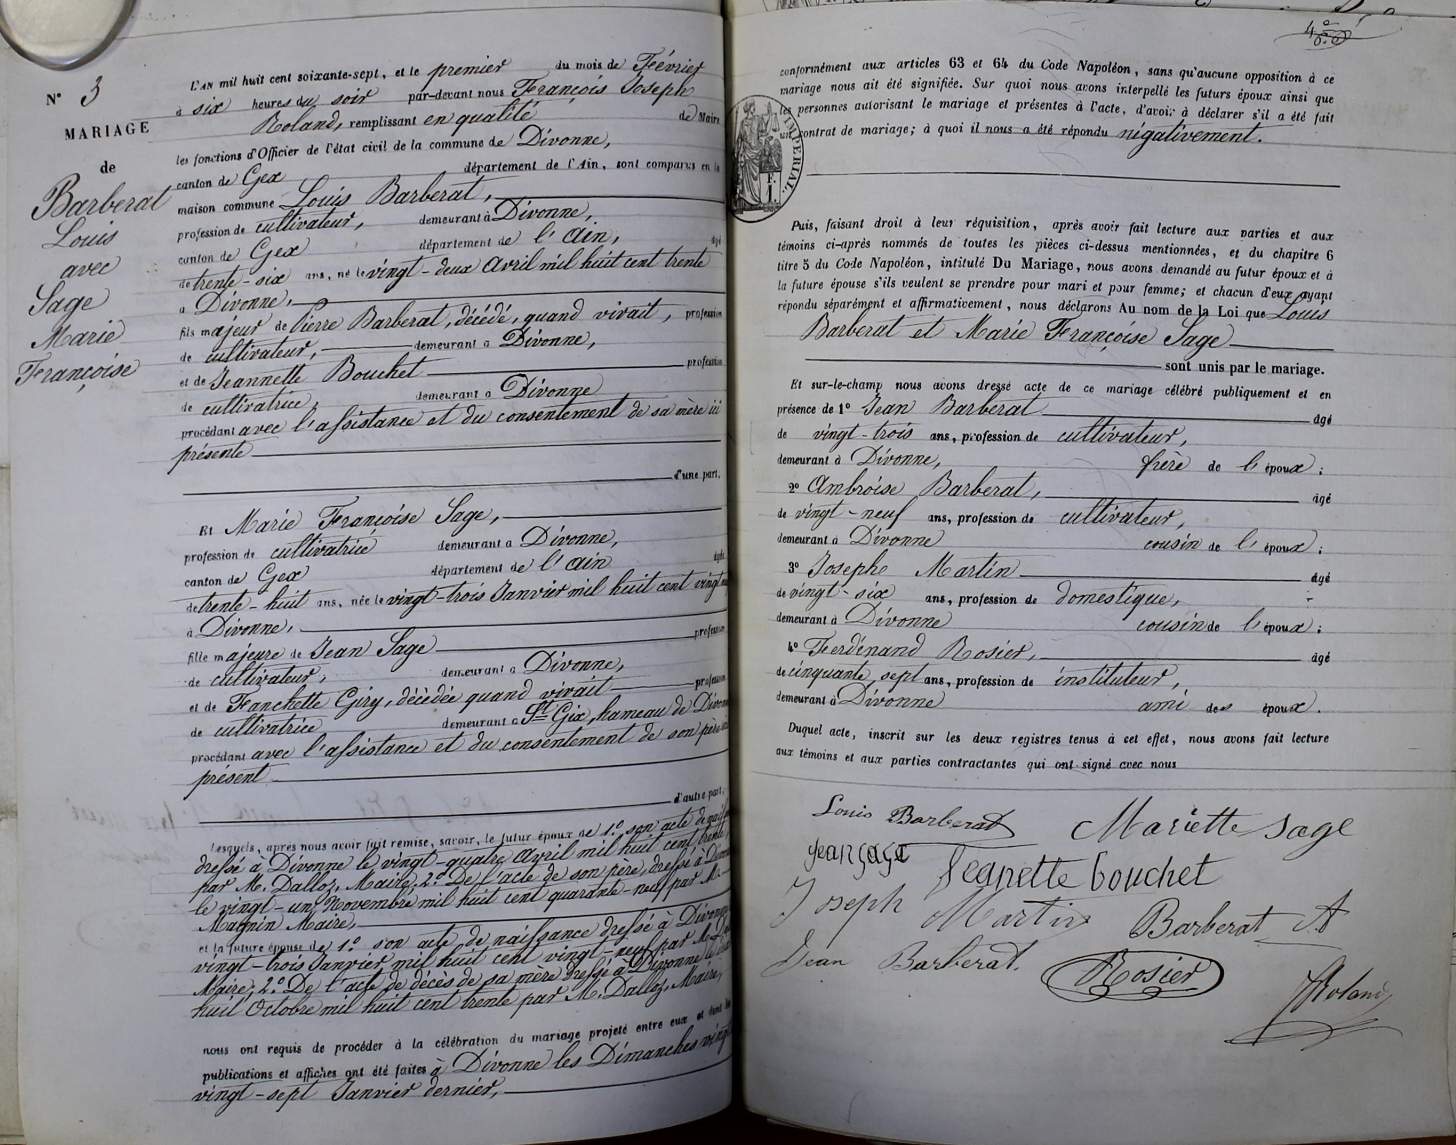 N° 3
MARIAGE
de
Barberat
Louis
avec
Sage
Marie
Françoise
L'AN mil huit cent soixante-sept, et le premier du mois de Février
à six heures du soir par-devant nous François Joseph
Roland, remplissant en qualité de Maire
les fonctions d'Officier de l'état civil de la commune de Divonne,
canton de Gex département de l'Ain, sont comparus en la
maison commune Louis Barberat,
profession de cultivateur, demeurant à Divonne,
canton de Gex département de l'Ain, agé
de trente-six ans, né le vingt-deux Avril mil huit cent trente
à Divonne,
fils majeur de Pierre Barberat, décédé, quand vivait, profession
de cultivateur, demeurant à Divonne,
et de Jeannette Bouchet profession
de cultivatrice, demeurant à Divonne
procédant avec l'assistance et du consentement de sa mère ici
présente
d'une part,
Et Marie Françoise Sage,
profession de cultivatrice demeurant à Divonne,
canton de Gex département de l'Ain agée
de trente-huit ans, née le vingt-trois Janvier mil huit cent vingt
à Divonne,
fille majeure de Jean Sage profession
de cultivateur, demeurant à Divonne,
et de Fanchette Giry, décédée quand vivait profession
de cultivatrice demeurant à St Gix, hameau de Divonne
procédant avec l'assistance et du consentement de son père
présent
d'autre part,
Lesquels, après nous avoir fait remise, savoir, le futur époux de 1° son acte de
dressé à Divonne le vingt-quatre Avril mil huit cent trente
par M. Dalloz, Maire, 2° De l'acte de son père, dressé à
le vingt-un Novembre mil huit cent quarante-neuf par M.
Magnin Maire,
et la future épouse de 1° son acte de naissance dressé à Divonne
vingt-trois Janvier mil huit cent vingt-neuf par M.
Maire, 2° De l'acte de décès de sa mère dressé à Divonne le
huit Octobre mil huit cent trente par M. Dalloz, Maire,
nous ont requis de procéder à la célébration du mariage projeté entre eux et dont les
publications et affiches ont été faites à Divonne les Dimanches vingt
vingt-sept Janvier dernier,
conformément aux articles 63 et 64 du Code Napoléon, sans qu'aucune opposition à ce
mariage nous ait été signifiée. Sur quoi nous avons interpellé les futurs époux ainsi que
les personnes autorisant le mariage et présentes à l'acte, d'avoir à déclarer s'il a été fait
un contrat de mariage; à quoi il nous a été répondu négativement.
IMPERIAL.
Puis, faisant droit à leur réquisition, après avoir fait lecture aux parties et aux
témoins ci-après nommés de toutes les pièces ci-dessus mentionnées, et du chapitre 6
titre 5 du Code Napoléon, intitulé Du Mariage, nous avons demandé au futur époux et à
la future épouse s'ils veulent se prendre pour mari et pour femme; et chacun d'eux ayant
répondu séparément et affirmativement, nous déclarons Au nom de la Loi que Louis
Barberat et Marie Françoise Sage
sont unis par le mariage.
Et sur-le-champ nous avons dressé acte de ce mariage célébré publiquement et en
présence de 1° Jean Barberat agé
de vingt-trois ans, profession de cultivateur,
demeurant à Divonne, frère de l'époux;
2° Ambroise Barberat, agé
de vingt-neuf ans, profession de cultivateur,
demeurant à Divonne cousin de l'époux;
3° Joseph Martin agé
de vingt-six ans, profession de domestique,
demeurant à Divonne cousin de l'époux;
4° Ferdinand Rosier, agé
de cinquante sept ans, profession de instituteur,
demeurant à Divonne ami des époux.
Duquel acte, inscrit sur les deux registres tenus à cet effet, nous avons fait lecture
aux témoins et aux parties contractantes qui ont signé avec nous
Louis Barberat Mariette Sage
jean sage Jeanette bouchet
Joseph Martin Barberat A
Jean Barberat. Rosier
Roland